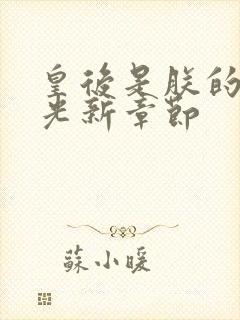 皇後是朕的
光新章節
蘇小暖